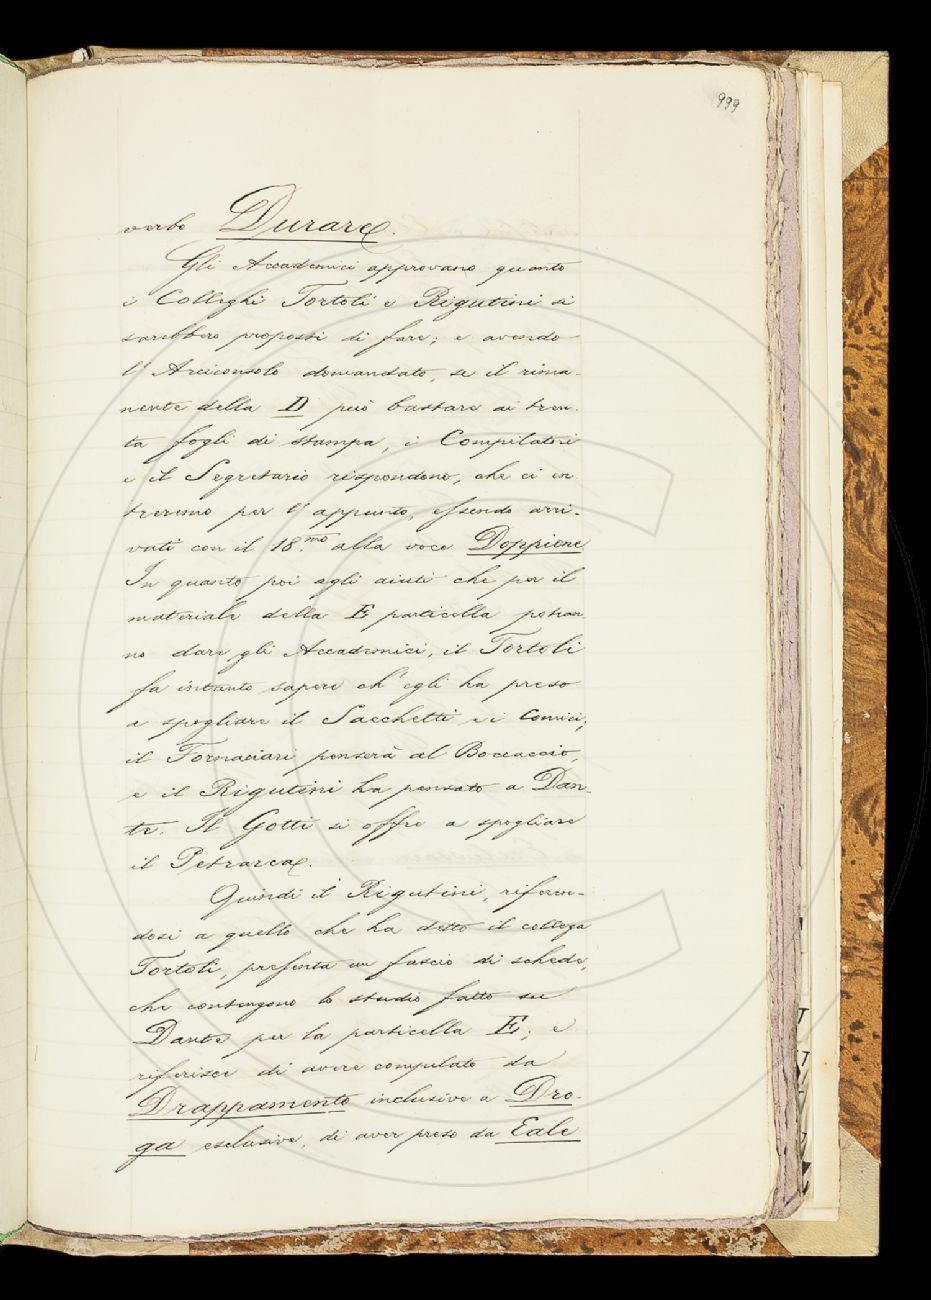 999
verbo Durare.
Gli Accademici approvano quanto
i Colleghi Tortoli e Rigutini si
sarebbero proposti di fare; e avendo
l'Arciconsolo domandato, se il rima-
nente della D può bastare ai tren-
ta fogli di stampa, i Compilatori
e il Segretario rispondono, che ci en-
treremo per l'appunto, essendo arri-
vati con il 18.mo alla voce Doppione
In quanto poi agli aiuti che per il
materiale della E particella potran
no dare gli Accademici, il Tortoli
fa intanto sapere ch'egli ha preso
a spogliare il Sacchetti e i Comici;
il Fornaciari penserà al Boccaccio,
e il Rigutini ha pensato a Dan-
te. Il Gotti si offre a spogliare
il Petrarca.
Quindi il Rigutini, riferen-
dosi a quello che ha detto il collega
Tortoli, presenta un fascio di schede,
che contengono lo studio fatto su
Dante per la particella E; e
riferisce di avere compilato da
Drappamento inclusive a Dro-
ga esclusive, di aver preso da Eale